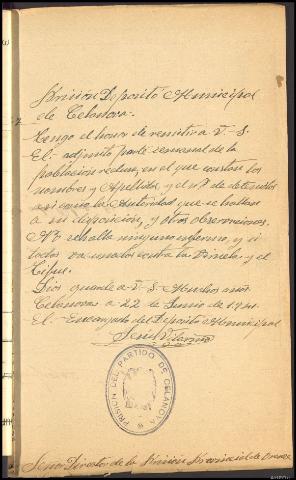 Prision Deposito Municipal
de Celanova.
Tengo el honor de remitir a V-S.
El adjunto parte semanal de la
poblacion reclusa, en el que constan los
nombres y Apellidos, y el nº de detenidos
asi como la Autoridad que se hallan
a su disposicion, y otras observaciones.
No se halla ninguno enfermo, y si
todos vacunados contra la Viruela y el
Tifus.
Dios guarde a V-S. Muchos años
Celanova a 22 de Junio de 1941.
El Encargado del Deposito Municipal
PRISION DEL PARTIDO DE CELANOVA
Señor Director de la Prision Provincial de Orense